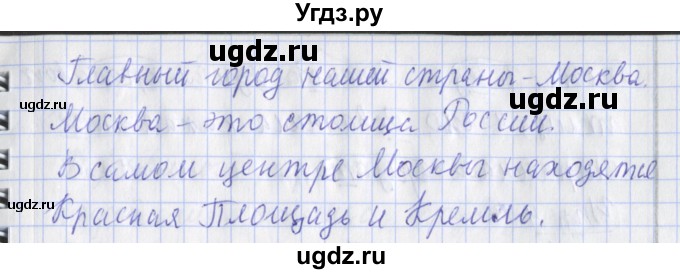 Угдз.ру
ugdz.ru ugdz.ru
Главный город нашей страны - Москва.
ugdz.ru ugdz.ru
Москва - это столица России.
ugdz.ru
В самом центре Москвы находятся
ugdz.ru ugdz.ru
Красная Площадь и Кремль.
ugdz.ru ugdz.ru